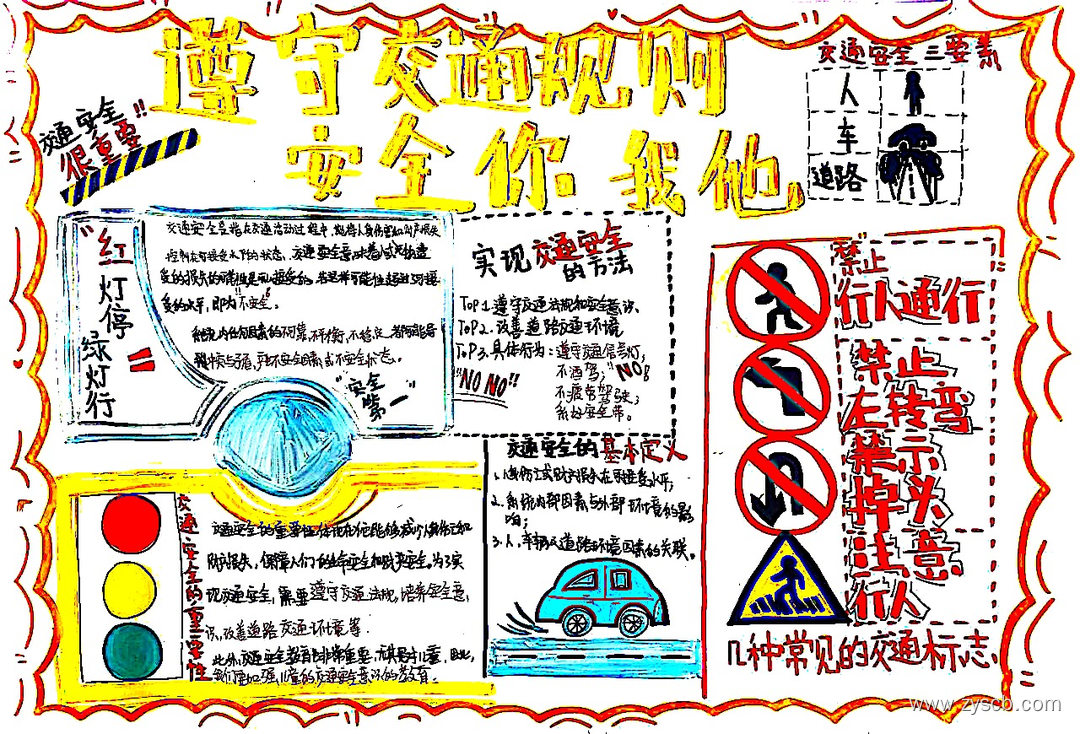 遵守交通规则
安全你我他
交通安全
很重要!!
交通安全三要素
人
车
道路
"红灯停
绿灯行"
交通安全是指在交通活动过程中,能将人身伤害和财产损失
控制在可接受水平的状态。交通安全意味着人或物遭
受的损失的可能性是可以接受的。若这种可能性超过可接
受的水平,即为"不安全"。
"安全
第一"
实现交通安全
的方法
Top1.遵守交通法规和安全意识。
ToP2.改善道路交通环境
ToP3.具体行为:遵守交通信号灯;
不酒驾;
不疲劳驾驶;
系好安全带。
"NO NO"!!
"NO!!
交通安全的基本定义
2.系统内部因素与外部环境的影
响;
3.人、车辆及道路环境因素的关联。
交通安全的重要性
财产损失,保障人们的生命安全和财产安全。为了实
现交通安全,需要遵守交通法规,培养安全意
识,改善道路交通环境等.
此外,交通安全教育也非常重要,尤其是对儿童,因此,
我们应加强儿童的交通安全意识的教育。
禁止
行人通行
禁止
左转弯
禁示
掉头
注意
行人
几种常见的交通标志。
www.zyscb.com